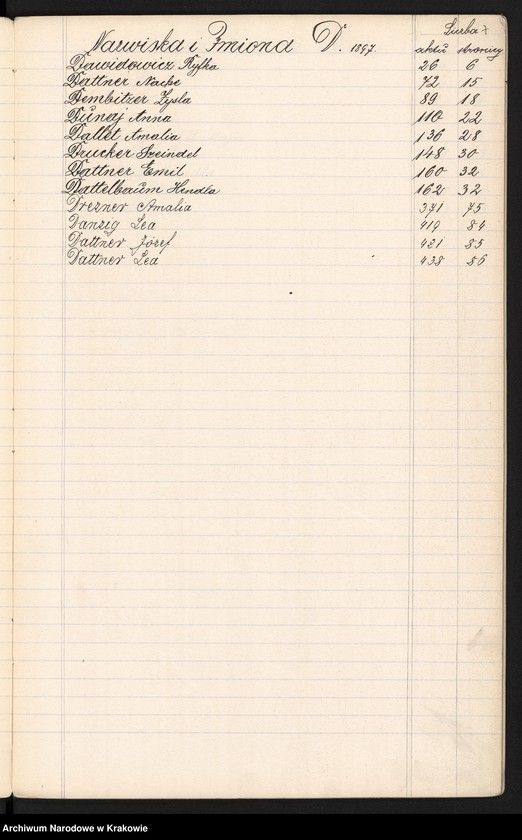 Liczba
Nazwiska i Imiona D. 1897. aktu strony
Dawidowicz Ryfka 26 6
Dattner Nache 72 15
Dembitzer Zysla 89 18
Dunaj Anna 110 22
Dallet Amalia 136 28
Drucker Szeindel 148 30
Dattner Emil 160 32
Dattelbaum Hendla 162 32
Drezner Amalia 371 75
Danzig Lea 419 84
Dattner Józef 421 85
Dattner Lea 438 86
Archiwum Narodowe w Krakowie